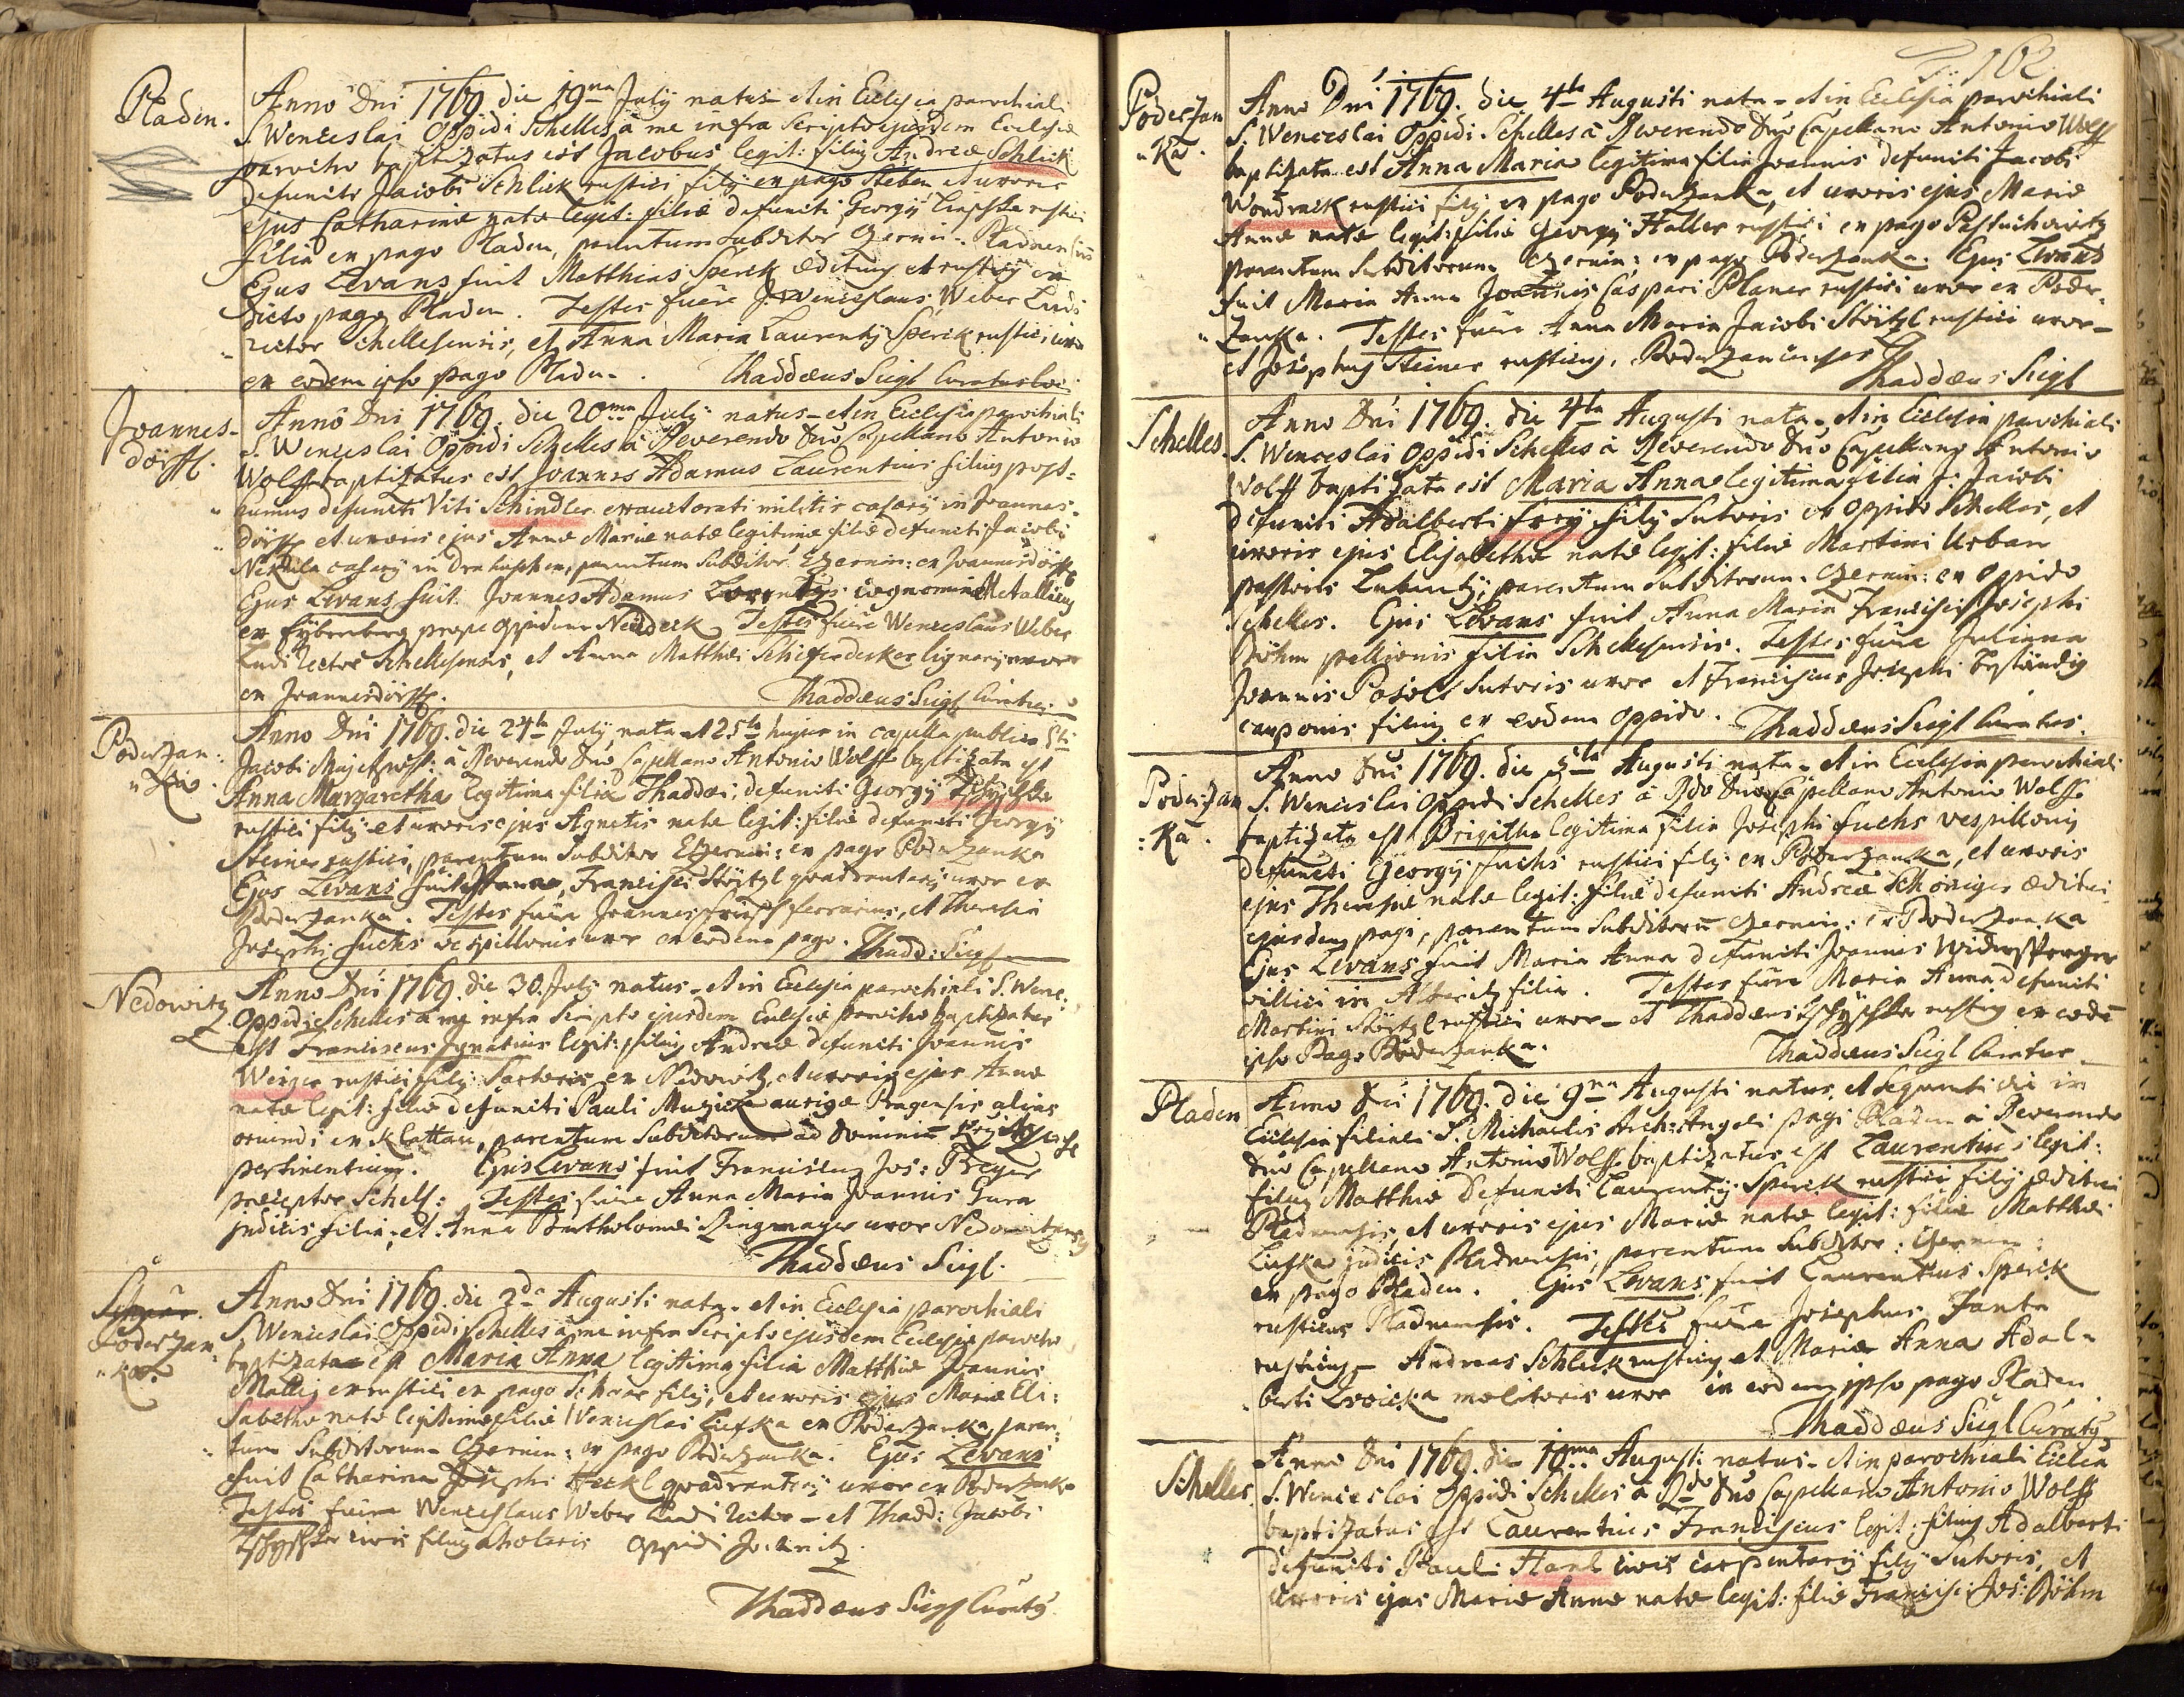 Pladen.
Anno Dni 1769 die 19na July natus et in Ecclesia parochiali
S. Wenceslai Oppidi Schelles à me infra Scripto ejusdem Ecclesiæ
parocho baptizatus est Jacobus legit: filius Andreæ Schlick
defuncti Jacobi Schlick rustici filij ex pago Steben et uxoris
ejus Catharinæ natæ legit: filiæ defuncti Georgij rustici
filia ex pago Pladen, parentum subditor Czernin:
Ejus Levans fuit Matthias Sperck Ædituus et rusticus ex
dicto pago Pladen. Testes fuêre Wenceslaus Weber Ludi
rector Schellesensis, et Anna Maria Laurentij Sperck rustici uxor
ex eodem ipso pago Pladen. Thaddæus Siegl Curatus loci
Joannes-
dörffl.
Anno Dni 1769. die 20ma July natus et in Ecclesia parochiali
S. Wenceslai Oppidi Schelles à Reverendo Dno Capellano Antonio
Wolff baptizatus est Joannes Adamus Laurentius filius post-
humus defuncti Viti Schindler exauctorati militis casarij in Joannes-
dörffl et uxoris ejus Annæ Mariæ natæ legitimæ filiæ defuncti Jacobi
casarij in parentum Subditor Czernin: ex Joannesdörffl
Ejus Levans fuit Joannes Adamus cognomine Metallicus
ex prope oppidum Neüdeck Testes fuêre Wenceslaus Weber
Ludi rector Schellesensis, et Anna Matthæi Schieferdecker lignarij uxor
ex Joannesdörffl. Thaddæus Siegl Curatus
Poderzan:
"ka.
Anno Dni 1769. die 24ta July nata et 25ta hujus in capella publica Sti
Jacobi Maj: à Reverendo Dno Capellano Antonio Wolff baptizata est
Anna Margaretha legitima filia Thaddæi, defuncti Georgij
rustici filij et uxoris ejus Agnetis natæ legit: filiæ defuncti Georgij
Steiner rustici, parentum Subditor Czernin: ex pago Poderzanka
Ejus Levans fuit Francisci Störtzl quadrantarij uxor ex
Poderzanka. Testes fuêre Joannes ferrarius, et Theresia
Josephi Fuchs vespillonis uxor ex eodem pago. Thadd: Siegl
Nedowitz
Anno Dni 1769. die 30. July natus et in Ecclesia parochiali S. Wenc:
Oppidi Schelles à me infra Scripto ejusdem Ecclesiæ parocho baptizatus
est Franciscus Ignatius legit: filius Andreæ defuncti Joannis
rustici filij Sartoris ex Nedowitz, et uxoris ejus Annæ
natæ legit: filiæ defuncti Pauli Muzick aurigæ Pragensis alias
oriundi ex Klattau, parentum Subditorum ad Dominiũ
pertinentium. Ejus Levans fuit Franciscus Jos: Preyer
præceptor Schell: Testes fuêre Anna Maria Joannis
judicis filia, et Anna Bartholomæi Ringmayer uxor Nedowitzensis
Thaddæus Siegl.
Poderzan
"ka.
Anno Dni 1769. die 2da Augusti nata et in Ecclesia parochiali
S. Wenceslai Oppidi Schelles à me infra Scripto ejusdem Ecclesiæ parocho
baptizata est Maria Anna legitima filia Matthiæ Joannis
rustici ex pago filij, et uxoris ejus Mariæ Eli:
sabethæ natæ legitimæ filiæ Wenceslai Liefka ex Poderzanka, paren:
"tum Subditorum Czernin: ex pago Poderzanka. Ejus Levans
fuit Catharina Josephi Heckl quadrantarij uxor ex Poderzanka
Testes fuêre Wenceslaus Weber Ludi rector et Thadd: Jacobi
civis filius scholaris oppidi Jechnitz.
Thaddæus Siegl Curatus
162
Poderzan
"ka.
Anno Dni 1769. die 4ta Augusti nata et in Ecclesia parochiali
S. Wenceslai Oppidi Schelles à Reverendo Dno Capellano Antonio Wolff
baptizata est Anna Maria legitima filia Joannis defuncti Jacobi
Wondrack rustici filij ex pago Poderzanka, et uxoris ejus Mariæ
Annæ natæ legit: filiæ Georgij Haller rustici ex pago Pastuchowitz
parentum Subditorum Czernin: ex pago Poderzanka. Ejus Levans
fuit Maria Anna Joannis Caspari Planer rustici uxor ex Poder-
"zanka. Testes fuêre Anna Maria Jacobi Störtzl rustici uxor
et Josephus Steiner rusticus, Poderzancenses
Thaddæus Siegl
Schelles.
Anno Dni 1769. die 4ta Augusti nata et in Ecclesia parochiali
S. Wenceslai Oppidi Schelles à Reverendo Dno Capellano Antonio
Wolff baptizata est Maria Anna legitima filia Jacobi
defuncti Adalberti filij Sutoris ex Oppido Schelles, et
uxoris ejus Elisabethæ natæ legit: filiæ Martini Urban
pastoris parentum Subditorum Czernin: ex Oppido
Schelles. Ejus Levans fuit Anna Maria Francisci Josephi
Böhm pellionis filia Schellesensis. Testes fuêre Juliana
Joannis Sutoris uxor et Franciscus Josephi Beständig
cauponis filius ex eodem oppido. Thaddæus Siegl Curatus.
Poderzan
:ka.
Anno Dni 1769. die 5ta Augusti nata et in Ecclesia parochiali
S. Wenceslai Oppidi Schelles à Rdo Dno Capellano Antonio Wolff
baptizata est Brigitha legitima filia Josephi Fuchs vespillonis
defuncti Georgij Fuchs rustici filij ex Poderzanka, et uxoris
ejus Theresiæ natæ legit: filiæ defuncti Andreæ Schöniger æditui
ejusdem pagi, parentum Subditorũ Czernin: ex Poderzanka
Ejus Levans fuit Maria Anna defuncti Joannis Widersperger
villici in filia. Testes fuêre Maria Anna defuncti
Martini Störtzl rustici uxor et Thaddæus rusticus ex eodẽ
ipso Pago Poderzanka. Thaddæus Siegl Curatus
Pladen
Anno Dni 1769. die 9na Augusti natus, et sequenti die in
Ecclesia filiali S. Michaelis Arch: Angeli pagi Pladen à Reverendo
Dno Capellano Antonio Wolff baptizatus est Laurentius legit:
filius Matthiæ defuncti Laurentij Sperck rustici filij æditui
Pladnensis, et uxoris ejus Mariæ natæ legit: filiæ Matthæi
Liefka judicis Pladnensis, parentum Subditor: Czernin:
ex pago Pladen. Ejus Levans fuit Laurentius Sperck
rusticus Pladnensis. Testes fuêre Josephus Janta
rusticus Andreas Schlick rusticus et Maria Anna Adal-
berti molitoris uxor in eodem ipso pago Pladen
Thaddæus Siegl Curatus
Schelles
Anno Dni 1769. die 10ma Augusti natus et in parochiali Ecclesia
S. Wenceslai Oppidi Schelles à Rdo Dno Capellano Antonio Wolff
baptizatus est Laurentius Franciscus legit: filius Adalberti
defuncti Pauli Hanl civis carpentarij filij Sutoris, et
uxoris ejus Mariæ Annæ natæ legit: filiæ Francisci Jos: Böhm